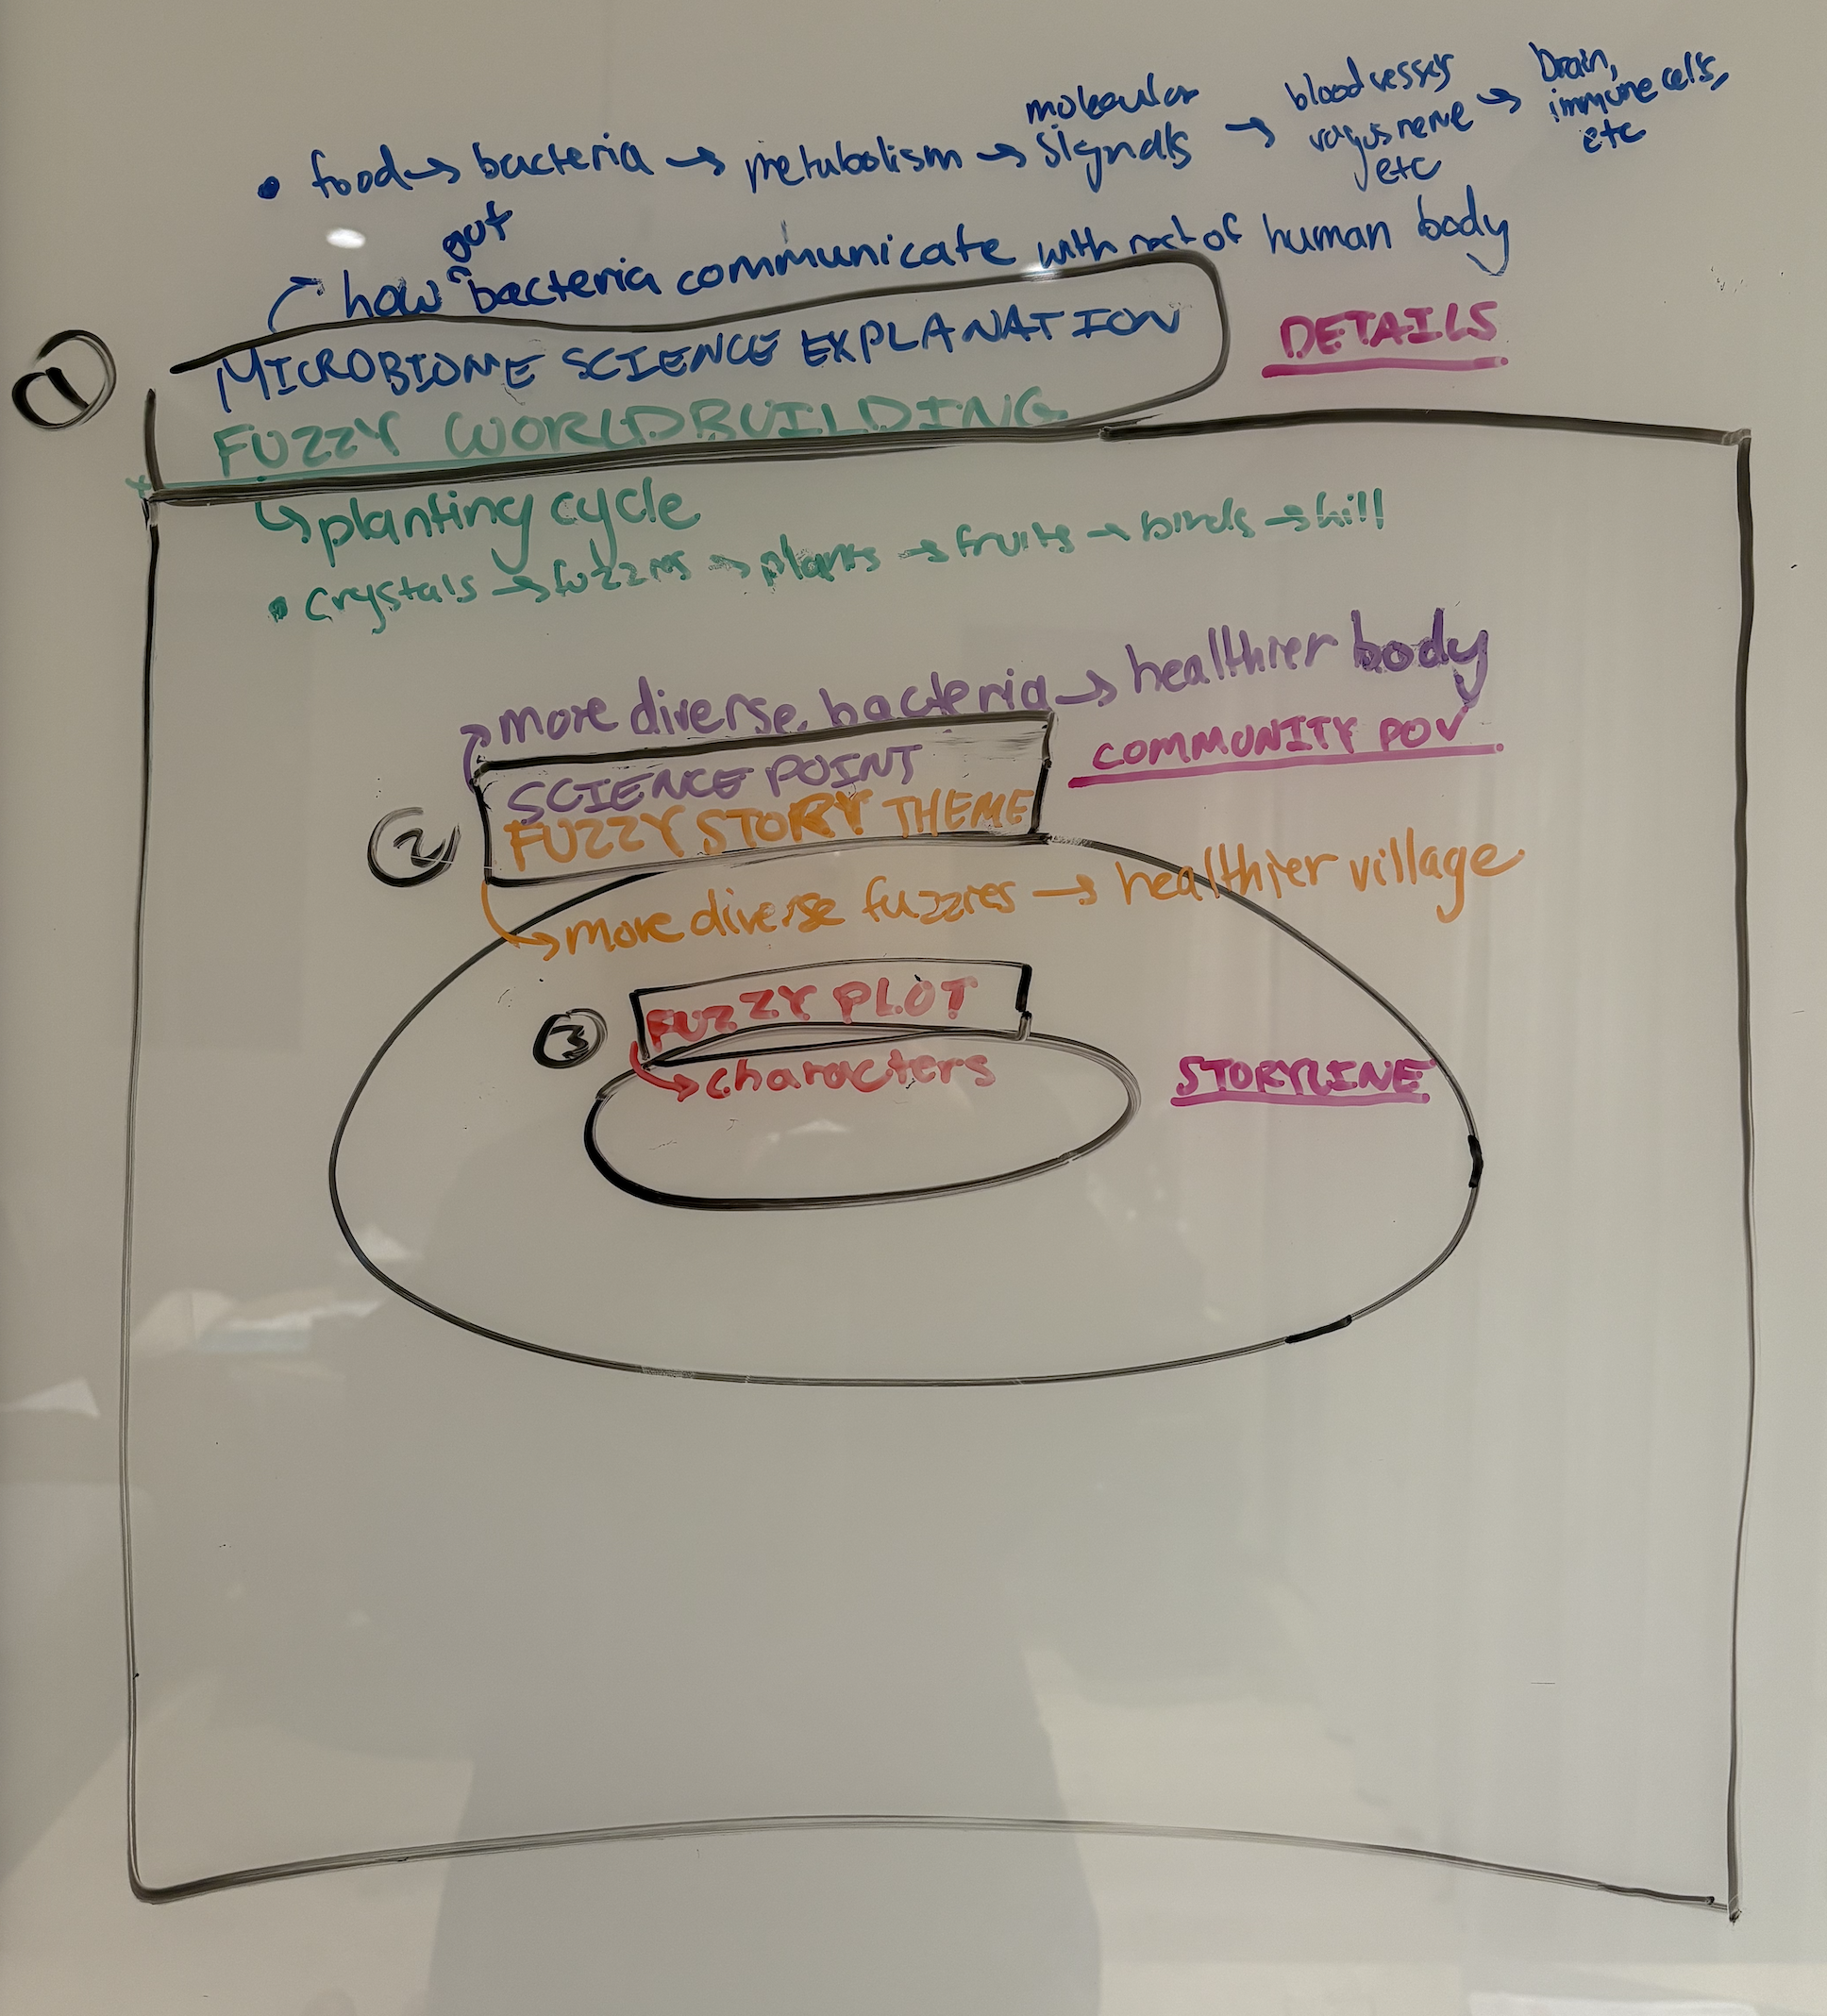 • food → bacteria → metabolism → molecular signals → blood vessels vagus nerve etc → brain, immune cells, etc
how gut bacteria communicate with rest of human body
1 MICROBIOME SCIENCE EXPLANATION
DETAILS
FUZZY WORLDBUILDING
planting cycle
• crystals → fuzzies → plants → fruits → birds → hill
more diverse bacteria → healthier body
SCIENCE POINT
COMMUNITY POV
2 FUZZY STORY THEME
more diverse fuzzies → healthier village
3 FUZZY PLOT
characters
STORYLINE